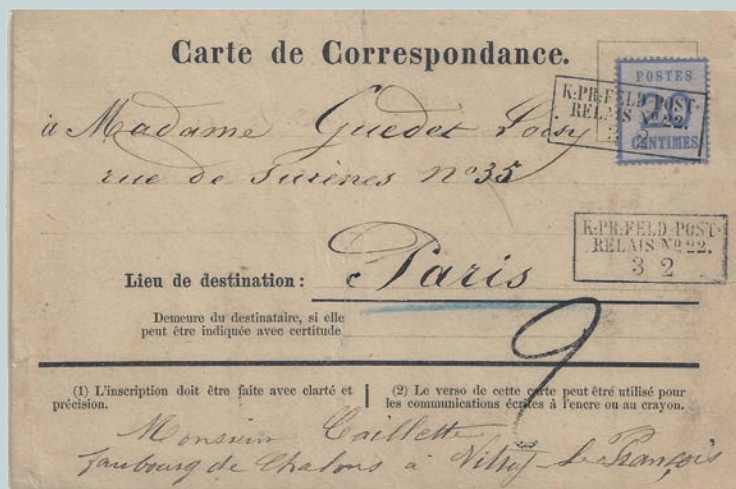 Carte de Correspondance.
POSTES
20
CENTIMES
K:PR:FELD-POST-
RELAIS No 22.
3 2
à Madame Guedet Loisy
rue de Surènes no 35
K:PR:FELD-POST-
RELAIS No 22.
3 2
Lieu de destination: Paris
Demeure du destinataire, si elle
peut être indiquée avec certitude
(1) L'inscription doit être faite avec clarté et
précision.
(2) Le verso de cette carte peut être utilisé pour
les communications écrites à l'encre ou au crayon.
Monsieur Caillette
faubourg de Chalons à Vitry le François